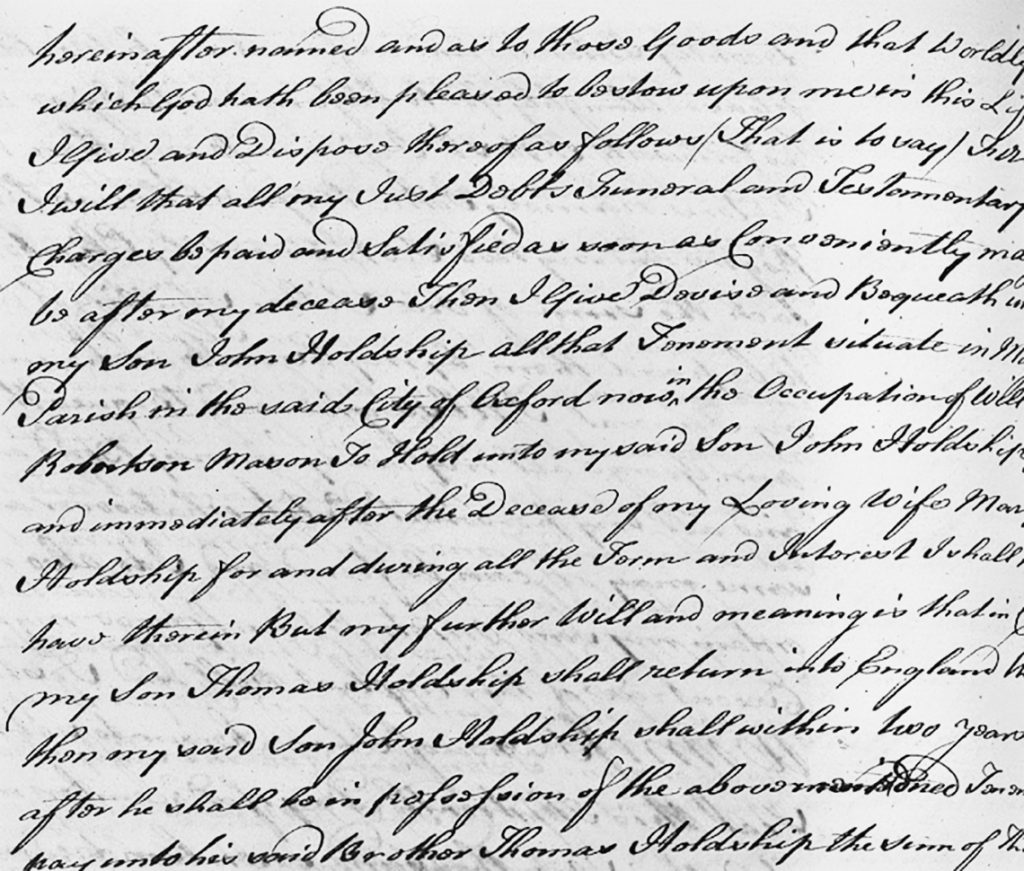 hereinafter named and as to those Goods and that Worldly
which God hath been pleased to bestow upon me in this
I Give and Dispose thereof as follows (That is to say)
I will that all my Just Debts Funeral and Testamentary
Charges be paid and Satisfied as soon as Conveniently
be after my decease Then I Give Devise and Bequeath
my Son John Holdship all that Tenement situate in
Parish in the said City of Oxford now in the Occupation of
Robertson Mason To Hold unto my said Son John Holdship
and immediately after the Decease of my Loving Wife
Holdship for and during all the Term and Interest I shall
have therein But my further Will and meaning is that in
my Son Thomas Holdship shall return into England
then my said Son John Holdship shall within two years
after he shall be in possession of the abovementioned
pay unto his said Brother Thomas Holdship the sum of